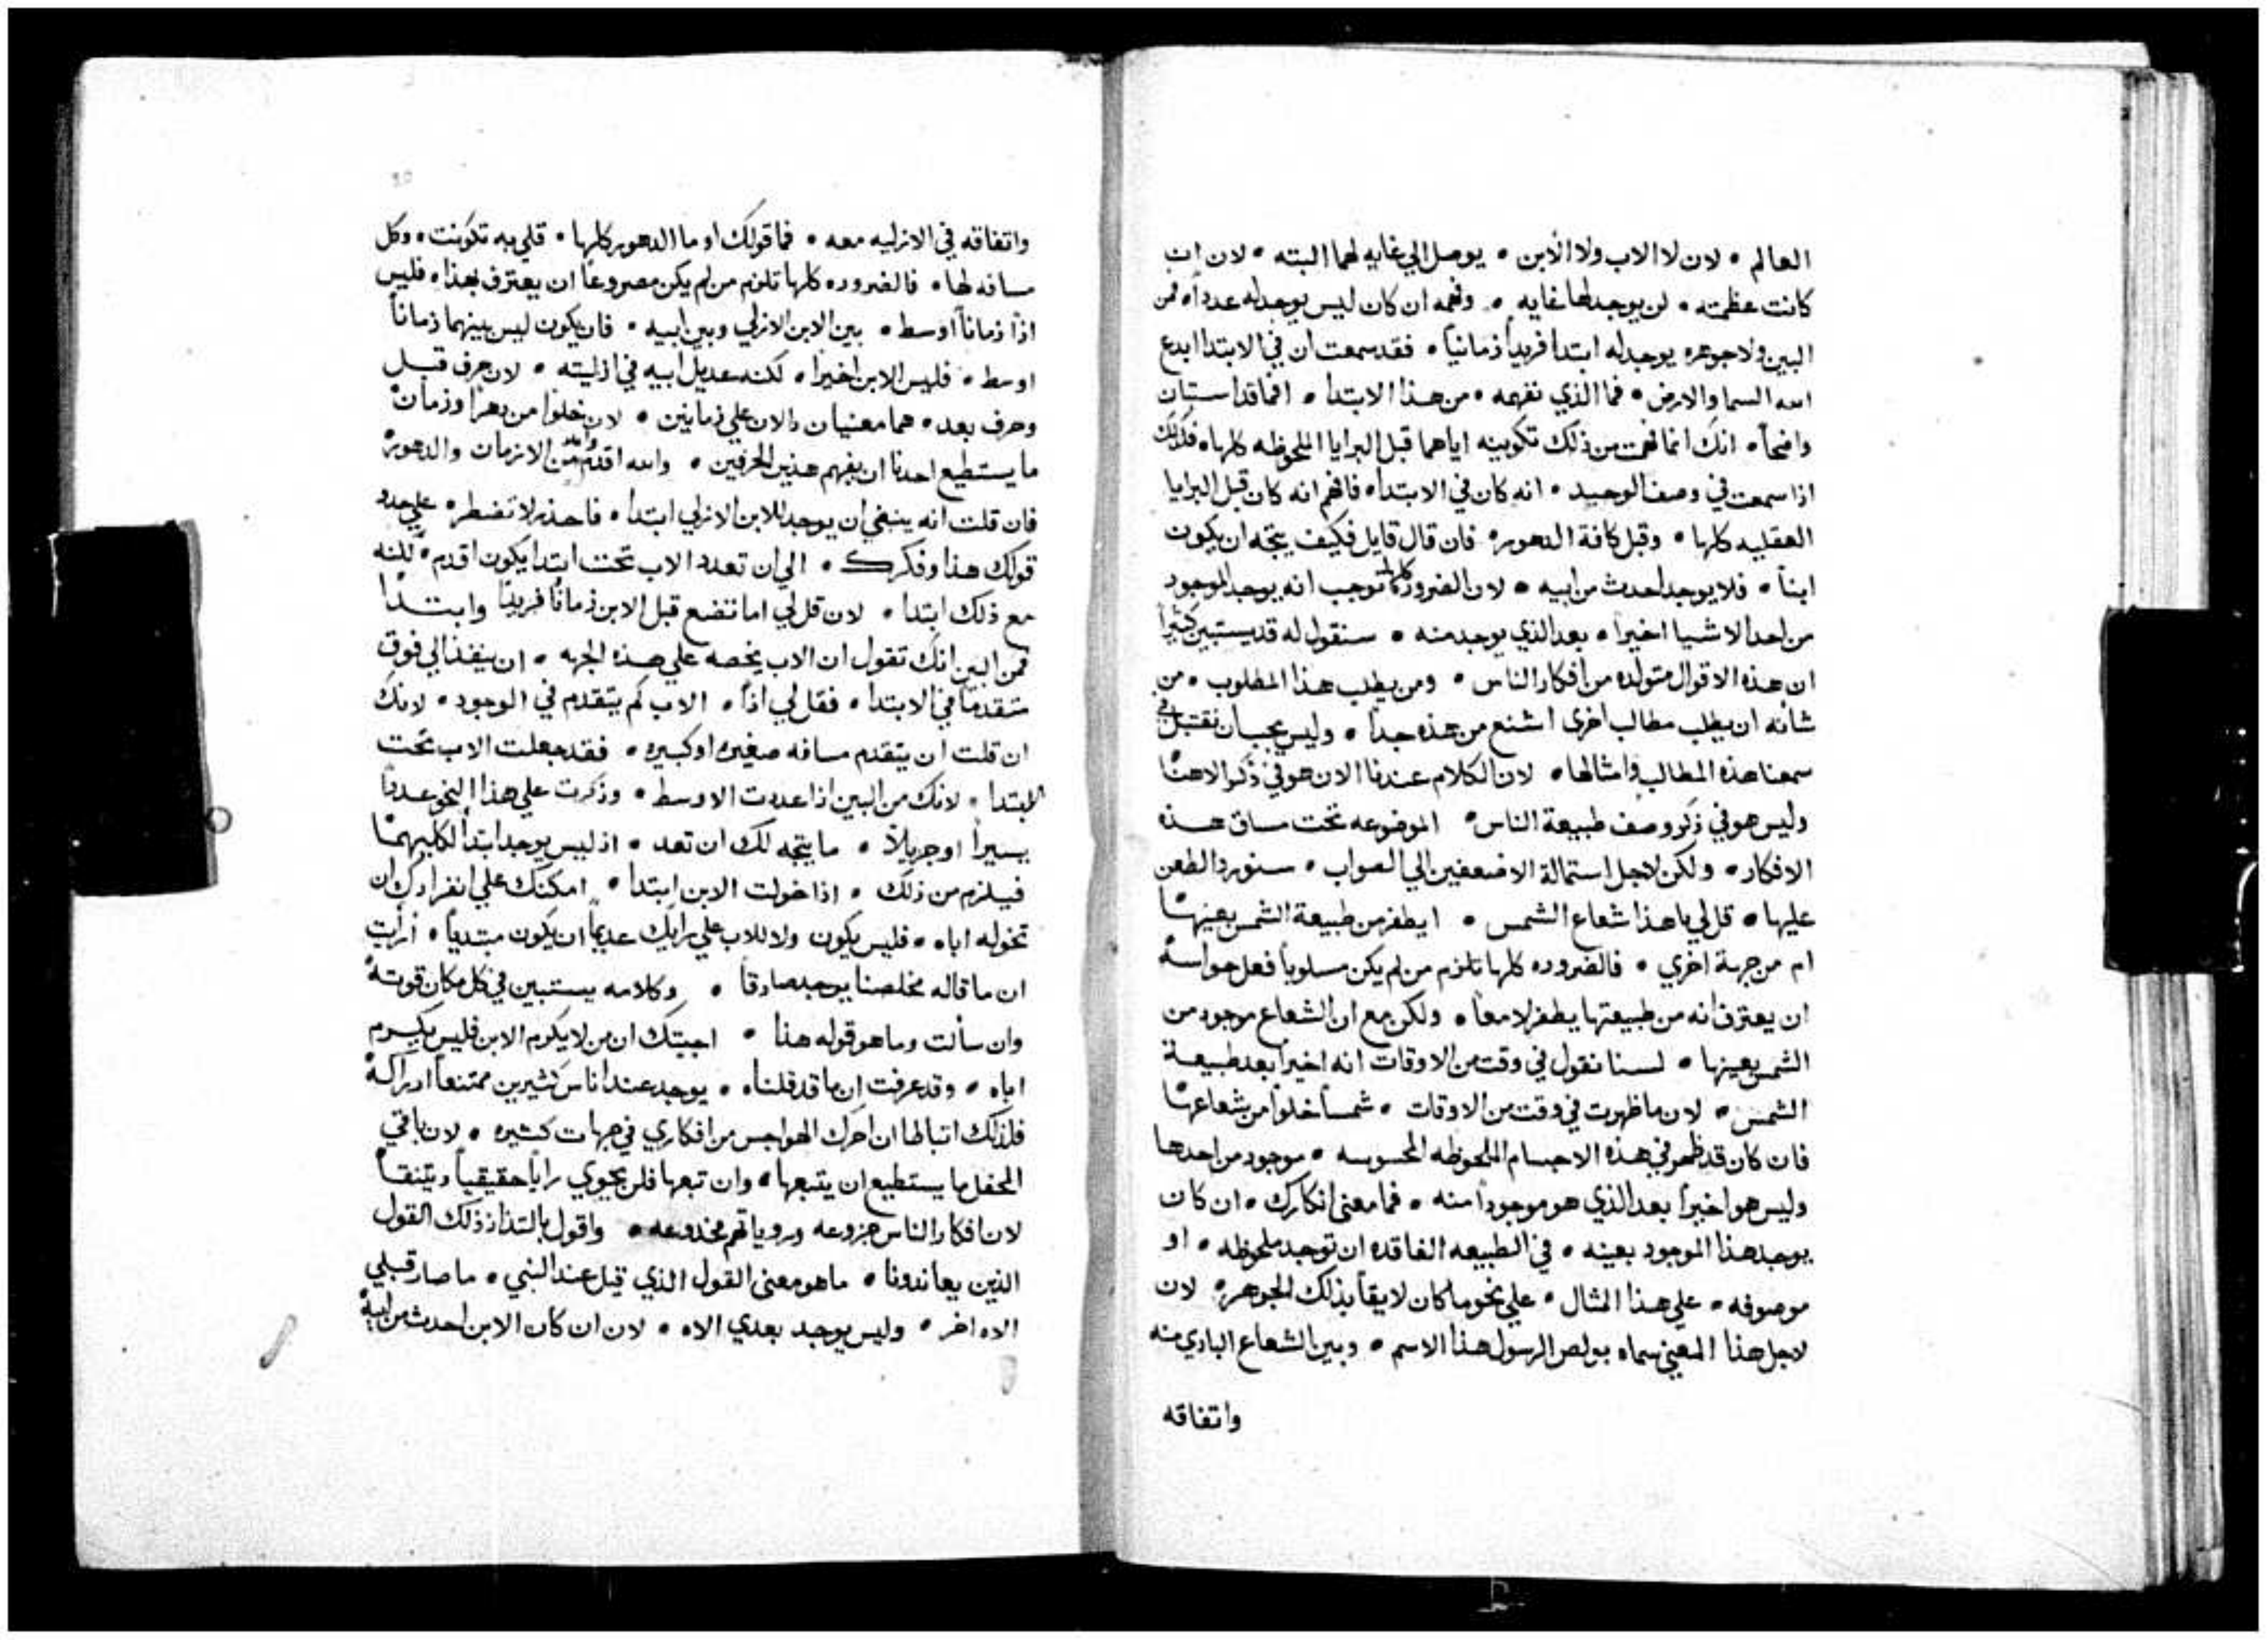 العالم • لان لا الاب ولا الابن • يوصل الي غايه لهما البته • لان ان
كانت عظمته • لن يوجد لها غايه • وفهمه ان كان ليس يوجد له عدداً • فمن
البين ولا جوهره يوجد له ابتدا فريداً زمانياً • فقد سمعت ان في الابتدا ابدع
الله السما والارض • فما الذي نفهمه • من هذا الابتدا • افما قد استبان
واضحاً • انك انما فهمت من ذلك تكوينه اياهما قبل البرايا الملحوظه كلها • فكذلك
اذا سمعت في وصف الوحيد • انه كان في الابتدا • فافهم انه كان قبل البرايا
العقليه كلها • وقبل كافة الدهور • فان قال قايل فكيف يتجه ان يكون
ابناً • فلا يوجد احدث من ابيه • لان الضروره كلها توجب انه يوجد الموجود
من احد الاشيا اخيراً • بعد الذي يوجد منه • سنقول له قد يستبين كثيراً
ان هذه الاقوال متولده من افكار الناس • ومن يطلب هذا المطلوب • من
شأنه ان يطلب مطالب اخرى اشنع من هذه جداً • وليس يجب ان نقتبل في
سمعنا هذه المطالب وامثالها • لان الكلام عندنا الان هو في ذكر الاهنا
وليس هو في ذكر وصف طبيعة الناس • الموضوعه تحت مساق هذه
الافكار • ولكن لاجل استمالة الاضعفين الي الصواب • سنورد الطعن
عليها • قل لي يا هذا شعاع الشمس • ايطفر من طبيعة الشمس بعينها
ام من جهة اخري • فالضروره كلها تلزم من لم يكن مسلوباً فعل حواسه
ان يعترف انه من طبيعتها يطفر لامعاً • ولكن مع ان الشعاع موجود من
الشمس بعينها • لسنا نقول في وقت من الاوقات انه اخيراً بعد طبيعة
الشمس • لان ما ظهرت في وقت من الاوقات • شمساً خلواً من شعاعها
فان كان قد ظهر في هذه الاجسام الملحوظه المحسوسه • موجود من احدها
وليس هو اخيراً بعد الذي هو موجوداً منه • فما معنى انكارك • ان كان
يوجد هذا الموجود بعينه • في الطبيعه الفاقده ان توجد ملحوظه • او
موصوفه • علي هذا المثال • علي نحو ما كان لايقاً بذلك الجوهر • لان
لاجل هذا المعني سماه بولص الرسول هذا الاسم • وبين الشعاع البادي منه
واتفاقه
واتفاقه في الازليه معه • فما قولك او ما الدهور كلها • قلي به تكونت • وكل
مسافه لها • فالضروره كلها تلزم من لم يكن مصروعاً ان يعترف بهذا • فليس
اذاً زماناً اوسط • بين الابن الازلي وبين ابيه • فان يكون ليس بينهما زماناً
اوسط • فليس الابن اخيراً • لكنه عديل ابيه في ازليته • لان حرف قبل
وحرف بعد • هما معنيان دالان علي زمانين • لان خلواً من دهراً وزمان
ما يستطيع احدنا ان يفهم هذين الحرفين • والله اقدم من الازمان والدهور
فان قلت انه ينبغي ان يوجد للابن الازلي ابتدا • فاحذر لا تضطر • علي حدو
قولك هذا وفكرك • الي ان تعدد الاب تحت ابتدا يكون اقدم • لكنه
مع ذلك ابتدا • لان قل لي اما تضع قبل الابن زماناً فريداً وابتدا
فمن البين انك تقول ان الاب يخصه علي هذه الجهه • ان ينفذ الي فوق
متقدماً في الابتدا • فقل لي اذاً • الاب كم يتقدم في الوجود • لانك
ان قلت ان يتقدم مسافه صغيره او كبيره • فقد جعلت الاب تحت
ابتدا • لانك من البين اذا عددت الاوسط • وذكرت علي هذا النحو عدداً
يسيراً او جزيلاً • ما يتجه لك ان تعد • اذ ليس يوجد ابتدا لكليهما
فيلزم من ذلك • اذا خولت الابن ابتدا • امكنك علي انفرادك ان
تخوله اباه • فليس يكون ولا للاب علي رايك عديماً ان يكون مبتدياً • أرأيت
ان ما قاله مخلصنا يوجد صادقا • وكلامه يستبين في كل مكان قوته
وان سألت وما هو قوله هذا • اجبتك ان من لا يكرم الابن فليس يكرم
اباه • وقد عرفت ان ما قد قلناه • يوجد عند اناس كثيرين ممتنعاً ادراكه
فلذلك اتباطا ان احرك الهواجس من افكاري في جهات كثيره • لان باقي
المحفل ما يستطيع ان يتبعها • وان تبعها فلن يحوي راياً حقيقياً ويتنقا
لان افكار الناس جزوعه ورويا تهم مخدوعه • واقول بالتذاذ ذلك القول
الذين يعاندونا • ما هو معنى القول الذي قيل عند النبي • ما صار قبلي
الاه اخر • وليس يوجد بعدي الاه • لان ان كان الابن احدث من ابيه